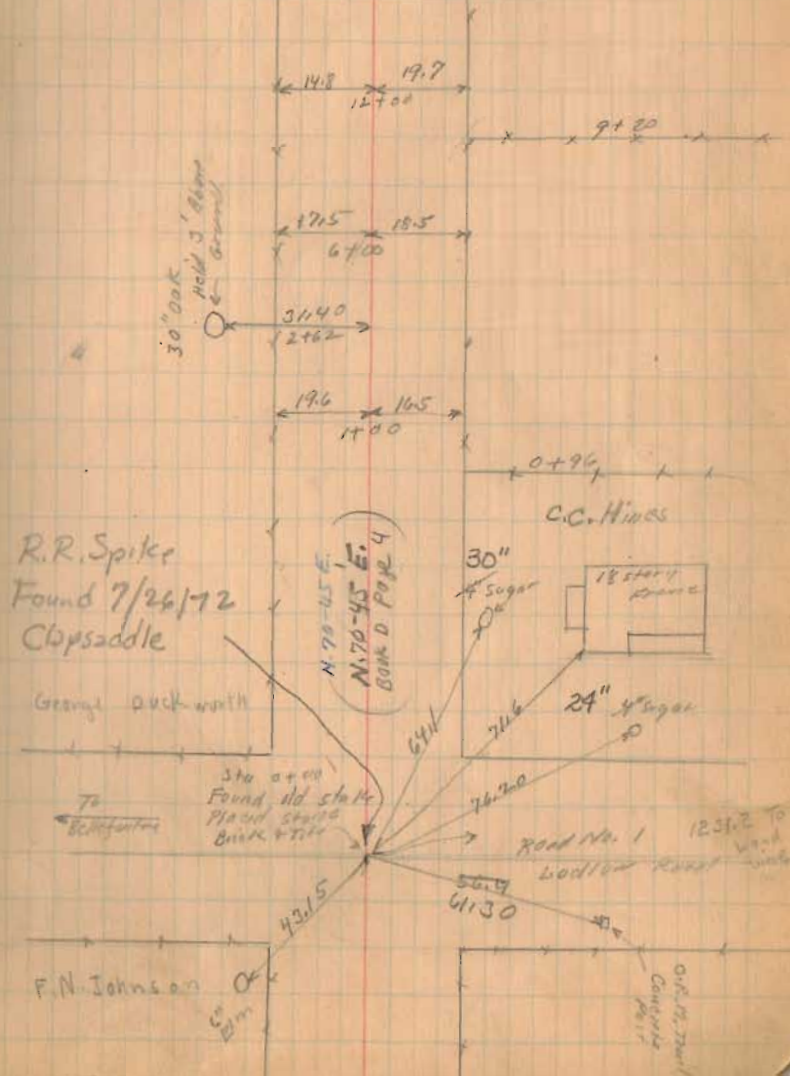 14.8
19.7
12+00
9+20
17.5
18.5
6+00
30" Oak
Hold 3' Above
Ground
31.40
2+62
19.6
16.5
1+00
0+96
C.C. Hines
R.R. Spike
Found 7/26/72
Clapsaddle
N.70-45 E.
N.70-45' E.
Book D Page 4
30"
4" Sugar
story
Frame
24"
4" Sugar
George Duckworth
64.1
71.6
76.20
Sta 0+00
Found old stake
Placed stone
Brick & Tile
To
Bellefontaine
Road No. 1
1231.2 To
Ludlow Road
56.9
61.30
43.15
F.N. Johnson
6"
Elm
Concrete
Post